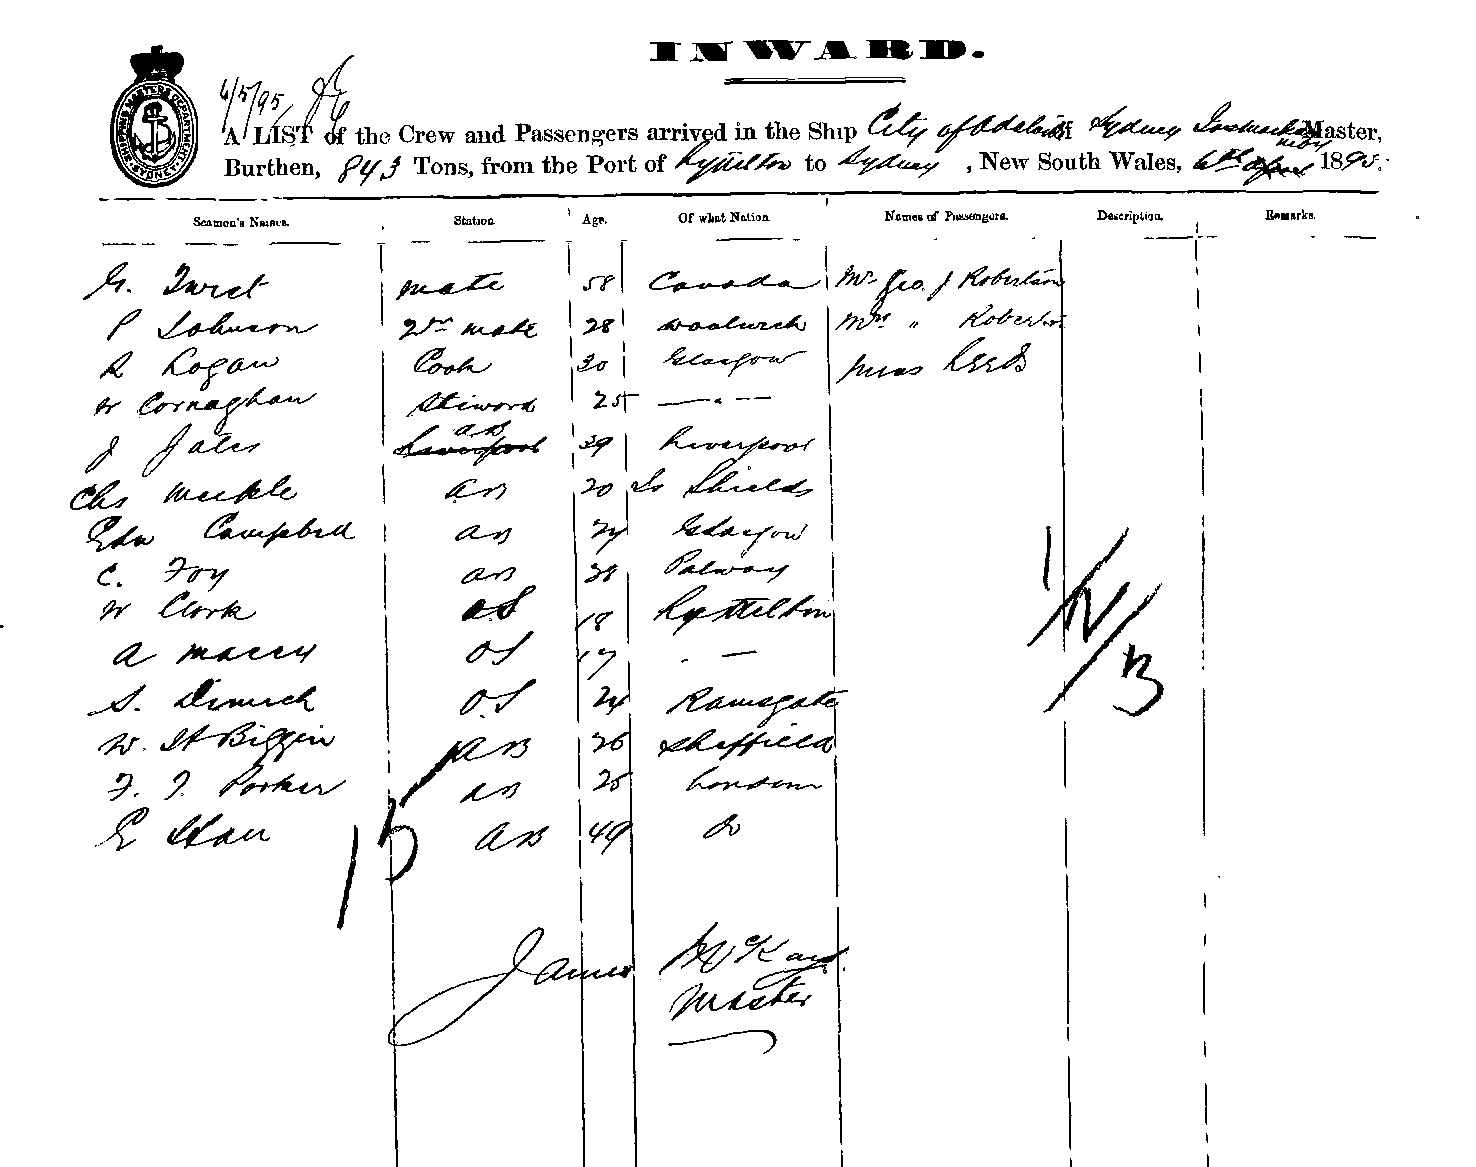 INWARD.
6/5/95
A LIST of the Crew and Passengers arrived in the Ship City of Adelaide of Sydney Master,
Burthen, 843 Tons, from the Port of Lyttelton to Sydney, New South Wales, 6th April May 1895.
SHIPPING MASTER'S DEPARTMENT SYDNEY
Seamen's Names. Station Age. Of what Nation Names of Passengers. Description. Remarks.
G. Twist mate 58 Canada Mr Geo. J Robertson
P Johnson 2nd mate 28 Woolwich Mrs " Robertson
R Logan Cook 30 Glasgow Miss Leeds
W Cornaghan Steward 25 — " —
J Jates Liverpool AB 39 Liverpool
Chs Meikle AB 20 So Shields
Edw Campbell AB 24 Glasgow
C. Foy AB 38
W Clark OS 18 Lyttelton
A OS 17 . —
S. OS 24 Ramsgate
W. St Biggin AB 26 Sheffield
F. J. Parker AB 25 London
E Starr AB 49 Do
15
1/2/3
James McKay
Master